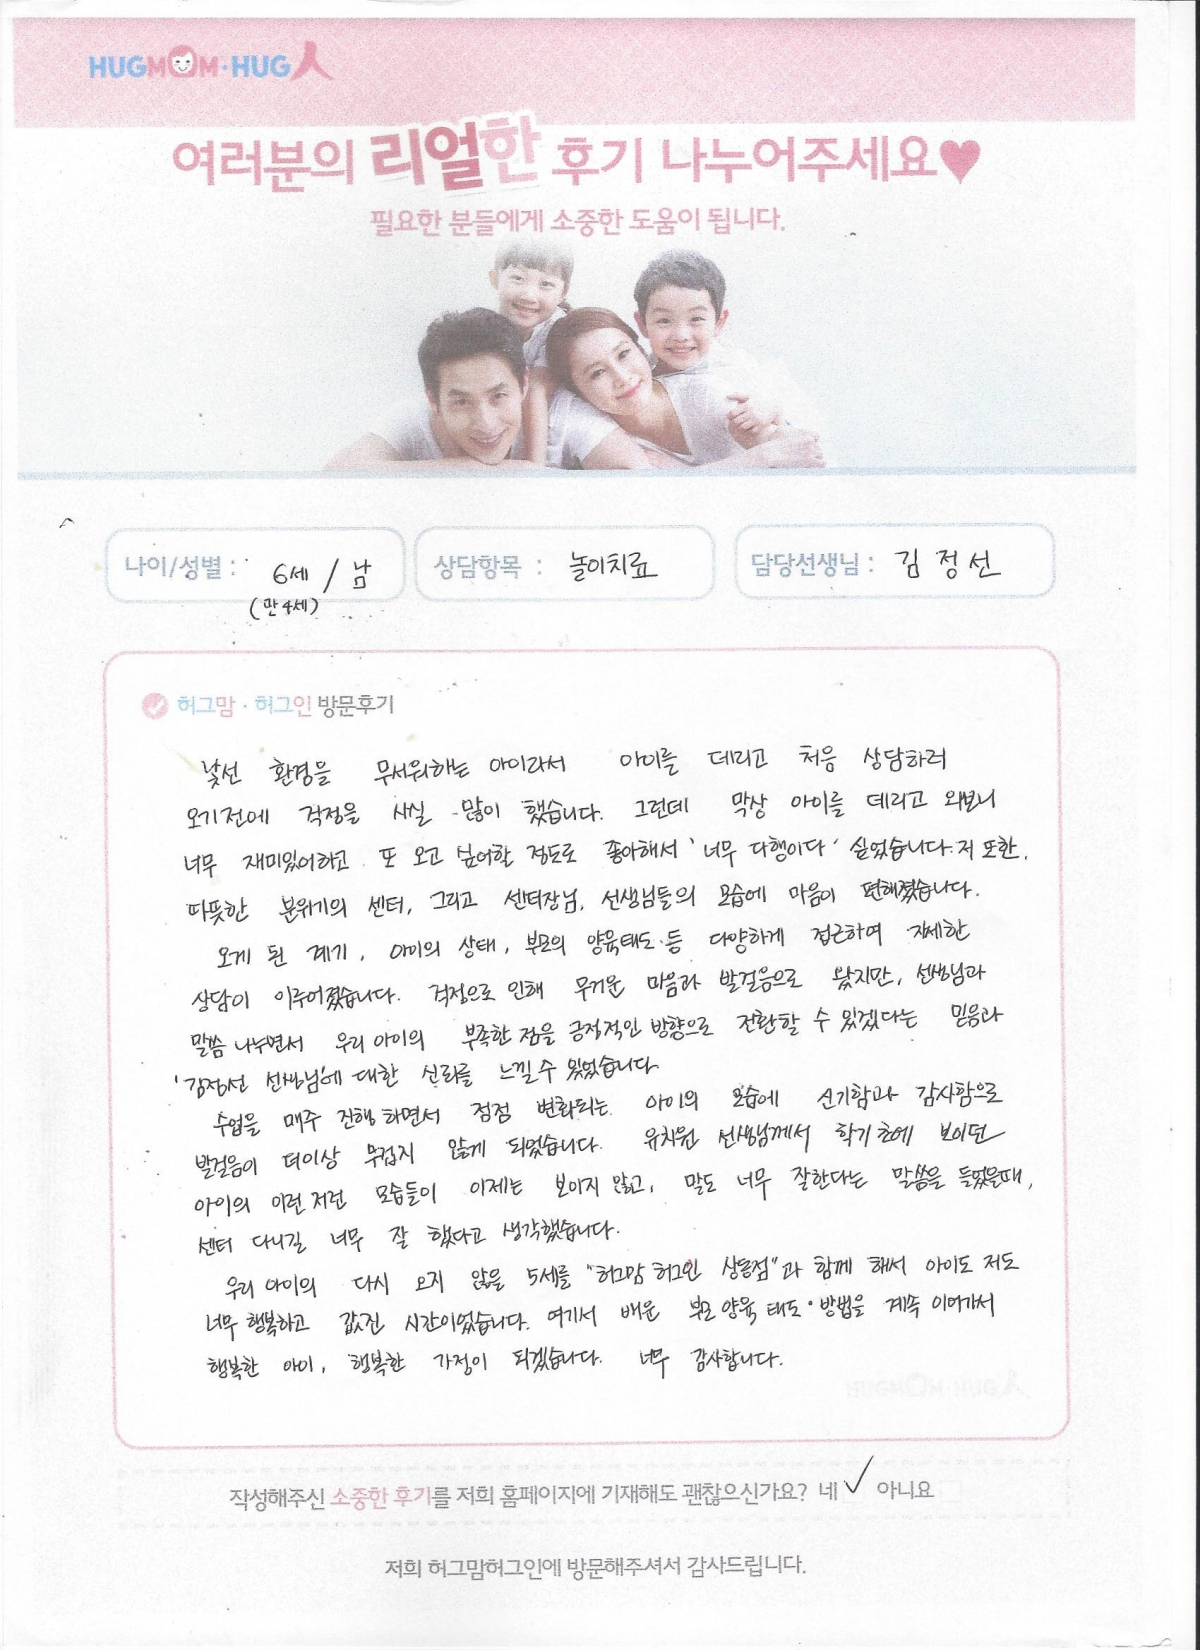 HUGMOM·HUG人
여러분의 리얼한 후기 나누어주세요♥
필요한 분들에게 소중한 도움이 됩니다.
나이/성별 : 6세 / 남
(만 4세)
상담항목 : 놀이치료
담당선생님 : 김정선
허그맘 · 허그인 방문후기
낯선 환경을 무서워하는 아이라서 아이를 데리고 처음 상담하러
오기전에 걱정을 사실 많이 했습니다. 그런데 막상 아이를 데리고 와보니
너무 재미있어하고 또 오고 싶어할 정도로 좋아해서 '너무 다행이다' 싶었습니다. 저 또한,
따뜻한 분위기의 센터, 그리고 센터장님, 선생님들의 모습에 마음이 편해졌습니다.
오게 된 계기, 아이의 상태, 부모의 양육태도 등 다양하게 접근하여 자세한
상담이 이루어졌습니다. 걱정으로 인해 무거운 마음과 발걸음으로 왔지만, 선생님과
말씀 나누면서 우리 아이의 부족한 점을 긍정적인 방향으로 전환할 수 있겠다는 믿음과
'김정선 선생님'에 대한 신뢰를 느낄 수 있었습니다
수업을 매주 진행하면서 점점 변화되는 아이의 모습에 신기함과 감사함으로
발걸음이 더이상 무겁지 않게 되었습니다. 유치원 선생님께서 학기초에 보이던
아이의 이런저런 모습들이 이제는 보이지 않고, 말도 너무 잘한다는 말씀을 들었을때,
센터 다니길 너무 잘 했다고 생각했습니다.
우리 아이의 다시 오지 않을 5세를 "허그맘 허그인 상동점"과 함께 해서 아이도 저도
너무 행복하고 값진 시간이었습니다. 여기서 배운 부모 양육 태도·방법을 계속 이어가서
행복한 아이, 행복한 가정이 되겠습니다. 너무 감사합니다.
작성해주신 소중한 후기를 저희 홈페이지에 기재해도 괜찮으신가요? 네 ✓ 아니요
저희 허그맘허그인에 방문해주셔서 감사드립니다.